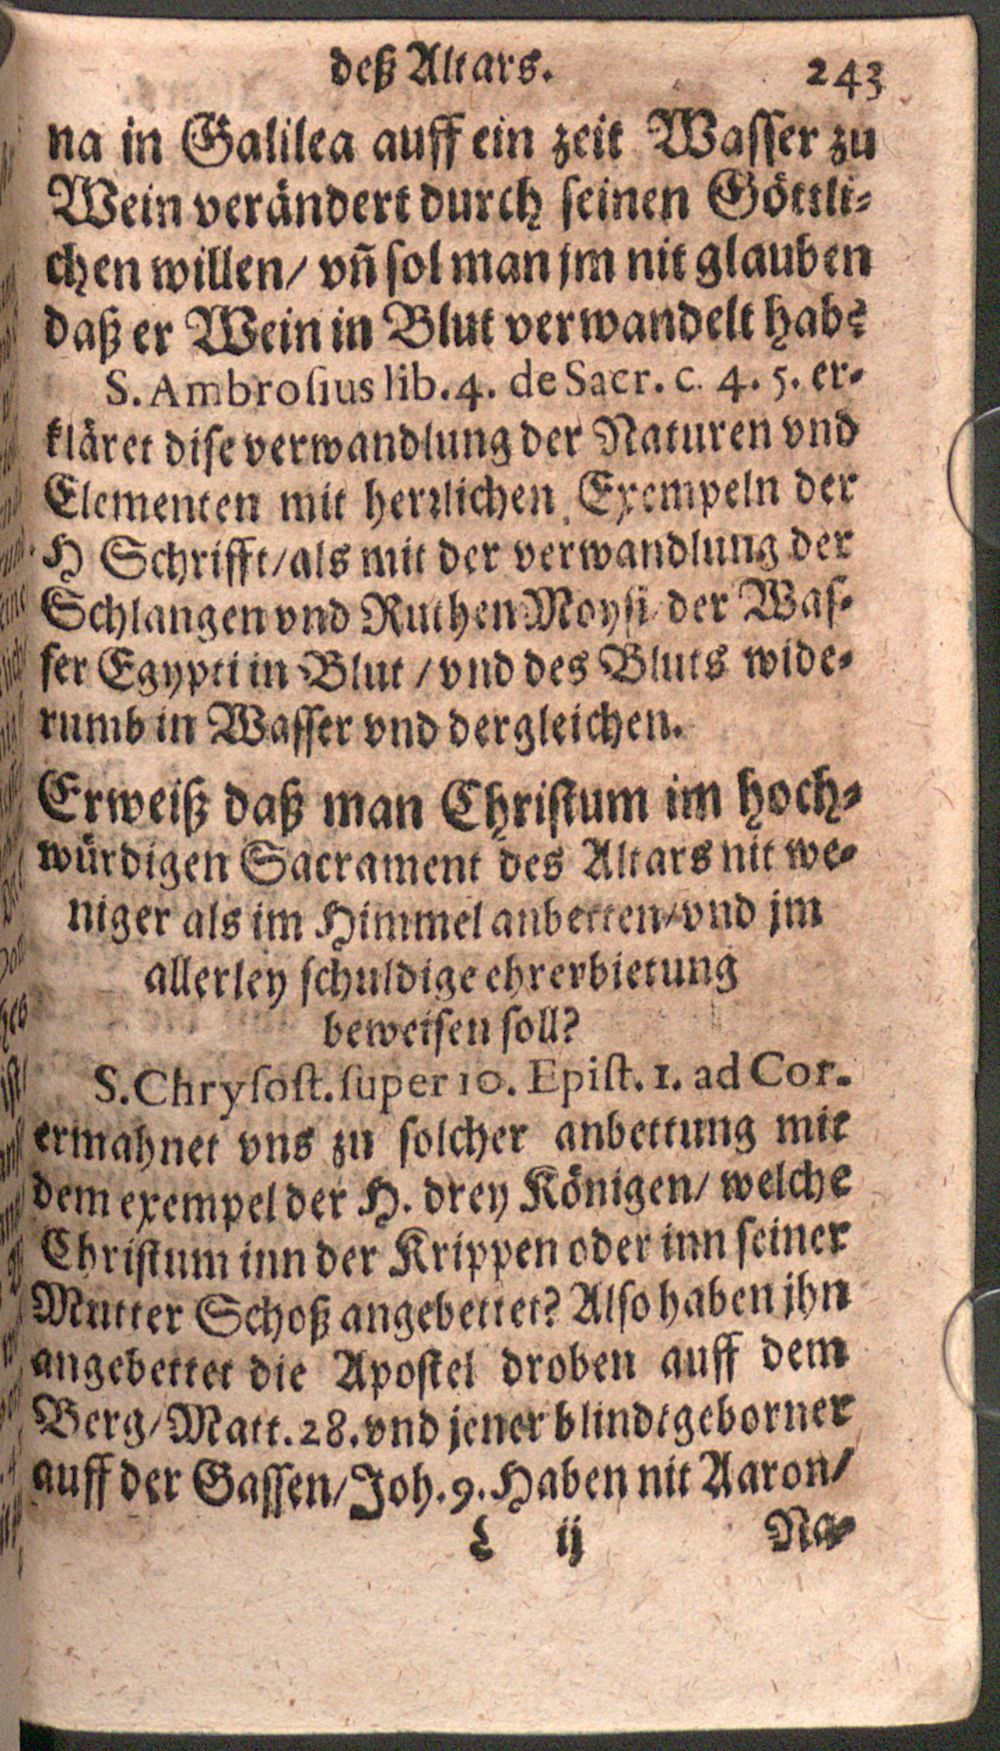 deß Altars. 243
na in Galilea auff ein zeit Wasser zu
Wein verändert durch seinen Göttli⸗
chen willen/ vñ sol man jm nit glauben
daß er Wein in Blut verwandelt hab?
S. Ambrosius lib. 4. de Sacr. c. 4. 5. er⸗
kläret dise verwandlung der Naturen vnd
Elementen mit herꝛlichen Exempeln der
H Schrifft/ als mit der verwandlung der
Schlangen vnd Ruthen Moysi/ der Was⸗
ser Egypti in Blut / vnd des Bluts wide⸗
rumb in Wasser vnd dergleichen.
Erweiß daß man Christum im hoch⸗
würdigen Sacrament des Altars nit we⸗
niger als im Himmel anbetten/ vnd jm
allerley schuldige ehrerbietung
beweisen soll?
S. Chrysost. super 10. Epist. 1. ad Cor.
ermahnet vns zu solcher anbettung mit
dem exempel der H. drey Königen/ welche
Christum inn der Krippen oder inn seiner
Mutter Schoß angebettet? Also haben jhn
angebettet die Apostel droben auff dem
Berg/ Matt. 28. vnd jener blindtgeborner
auff der Gassen/ Joh. 9. Haben nit Aaron/
L ij Na⸗